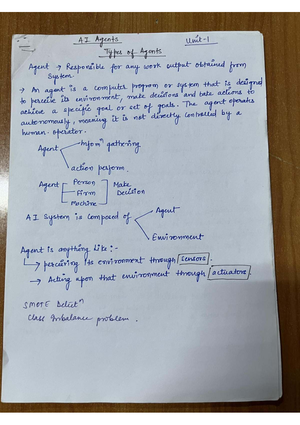 A.I. Agents Unit-1
Types of Agents
Agent → Responsible for any work output obtained from
System.
→ An agent is a computer program or system that is designed
to perceive its environment, make decisions and take actions to
achieve a specific goal or set of goals. The agent operates
autonomously, meaning it is not directly controlled by a
human operator.
Agent Informⁿ gathering
action perform.
Agent Person Make
Firm Decision
Machine
A.I. System is composed of Agent
Environment
Agent is anything like :-
→ perceiving its environment through sensors.
→ Acting upon that environment through actuators
SMOTE Detectⁿ
Class Imbalance problem.